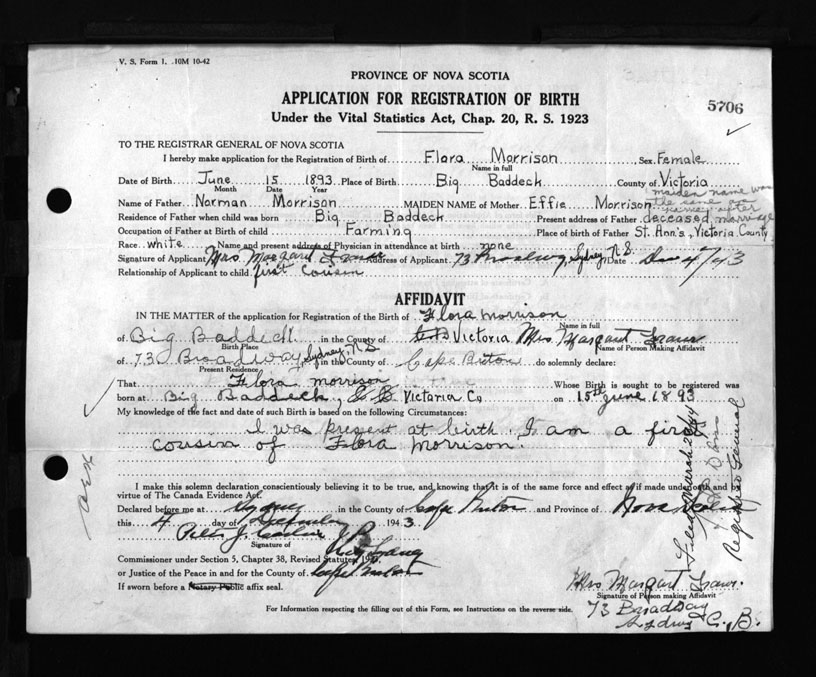 V. S. Form 1. 10M 10-42
PROVINCE OF NOVA SCOTIA
APPLICATION FOR REGISTRATION OF BIRTH
5706
Under the Vital Statistics Act, Chap. 20, R. S. 1923
TO THE REGISTRAR GENERAL OF NOVA SCOTIA
I hereby make application for the Registration of Birth of Flora Morrison Sex Female
Name in full
Date of Birth June 15 1893 Place of Birth Big Baddeck County of Victoria
Month Date Year
maiden name was the same as name after marriage
Name of Father Norman Morrison MAIDEN NAME of Mother Effie Morrison
Residence of Father when child was born Big Baddeck Present address of Father deceased
Occupation of Father at Birth of child Farming Place of birth of Father St. Ann's, Victoria County
Race white Name and present address of Physician in attendance at birth none
Signature of Applicant Mrs Margart Address of Applicant 73 Broadway, Sydney N.S. Date Dec 4/43
Relationship of Applicant to child first Cousin
AFFIDAVIT
IN THE MATTER of the application for Registration of Birth of Flora Morrison
Name in full
of Big Baddeck in the County of Victoria Mrs Margart
Birth Place Name of Person Making Affidavit
of 73 Broadway, Sydney, N.S in the County of Cape Breton do solemnly declare:
Present Residence
That Flora Morrison Whose Birth is sought to be registered was
born at Big Baddeck, C B Victoria Co on 15th June 1893
My knowledge of the fact and date of such Birth is based on the following Circumstances:
I was present at birth. I am a first
cousin of Flora Morrison.
I make this solemn declaration conscientiously believing it to be true, and knowing that it is of the same force and effect as if made under oath and by
virtue of The Canada Evidence Act.
Declared before me at Sydney in the County of Cape Breton and Province of Nova Scotia
this 4 day of December 1943
Peter J.
Signature of
Commissioner under Section 5, Chapter 38, Revised Statutes,
or Justice of the Peace in and for the County of Cape Breton
If sworn before a Notary Public affix seal.
Mrs Margart
Signature of Person making Affidavit
For Information respecting the filling out of this Form, see Instructions on the reverse side.
73 Broadway
Sydney C. B.
Filed March 29/44
Registrar General